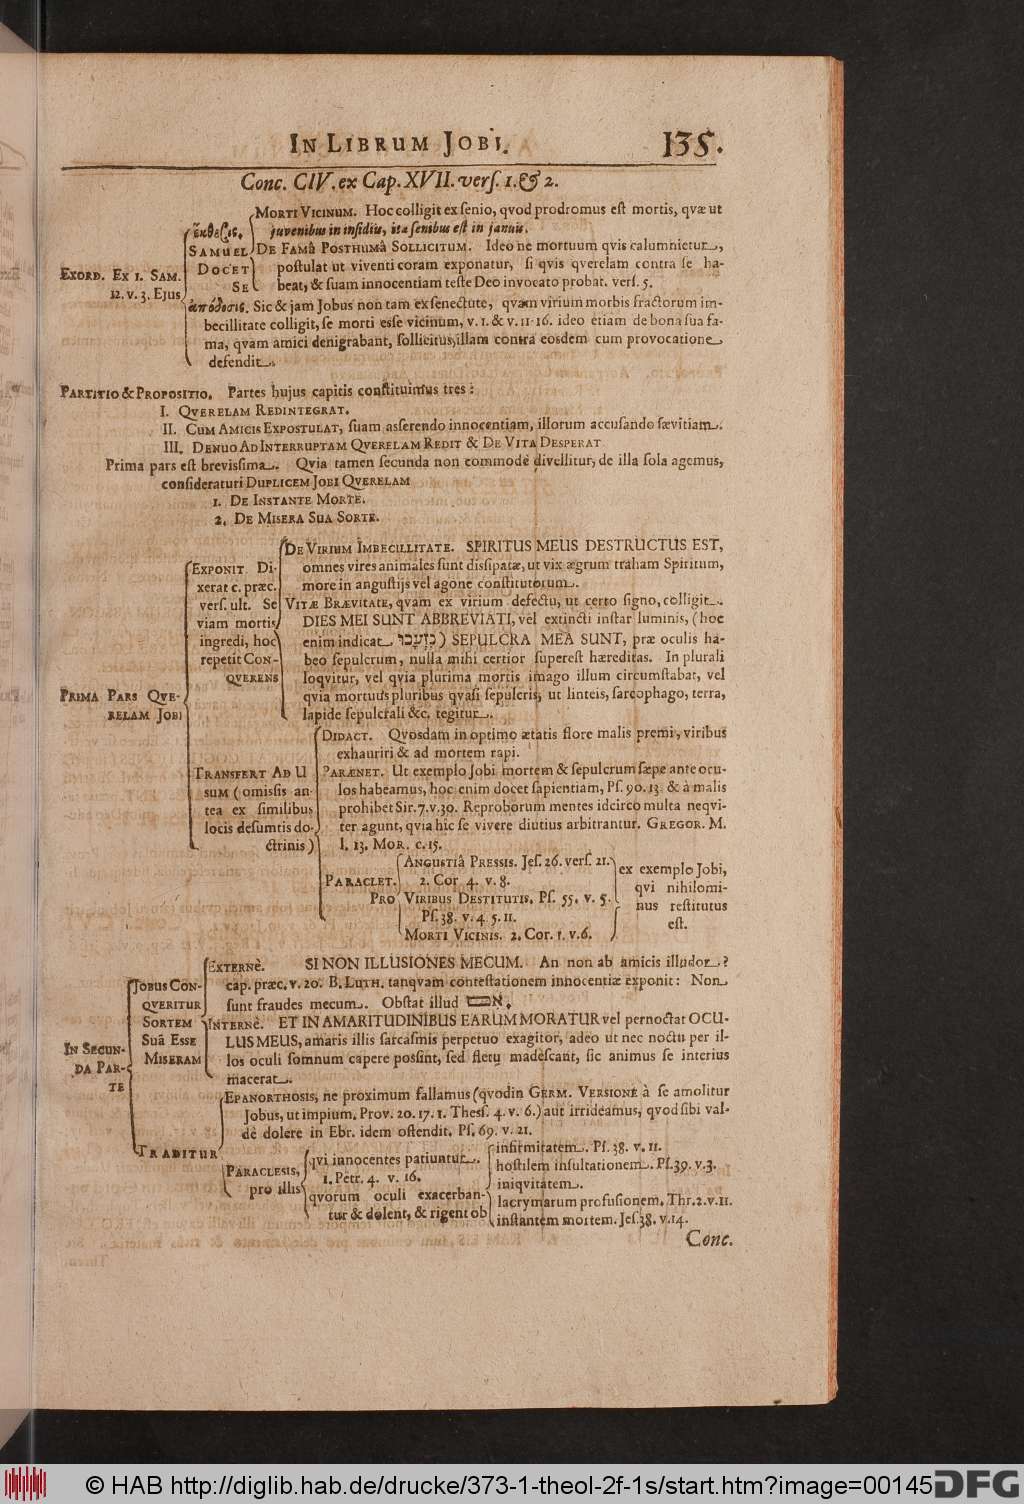 IN LIBRUM JOBI. 135.
Conc. CIV. ex Cap. XVII. vers. 1. & 2.
EXORD. EX 1. SAM. 12. v. 3. EJUS
ἔκθεσις.
SAMUEL DOCET SE
MORTI VICINUM. Hoc colligit ex senio, qvod prodromus est mortis, qvæ ut
juvenibus in insidiis, ita senibus est in januis.
DE FAMÂ POSTHUMÂ SOLLICITUM. Ideo ne mortuum qvis calumnietur,
postulat ut viventi coram exponatur, si qvis qverelam contra se ha-
beat, & suam innocentiam teste Deo invocato probat. vers. 5.
ἀπόδοσις. Sic & jam Jobus non tam ex senectute, qvam virium morbis fractorum im-
becillitate colligit, se morti esse vicinum, v. 1. & v. 11. 16. ideo etiam de bona sua fa-
ma, qvam amici denigrabant, sollicitus, illam contra eosdem cum provocatione
defendit.
PARTITIO & PROPOSITIO. Partes hujus capitis constituimus tres:
I. QVERELAM REDINTEGRAT.
II. CUM AMICIS EXPOSTULAT, suam asserendo innocentiam, illorum accusando sævitiam.
III. DENUO AD INTERRUPTAM QVERELAM REDIT & DE VITA DESPERAT
Prima pars est brevissima. Qvia tamen secunda non commodè divellitur, de illa sola agemus,
consideraturi DUPLICEM JOBI QVERELAM
1. DE INSTANTE MORTE.
2. DE MISERA SUA SORTE.
PRIMA PARS QVE-
RELAM JOBI
EXPONIT. Di-
xerat c. præc.
vers. ult. Se
viam mortis
ingredi, hoc
repetit CON-
QVERENS
DE VIRIUM IMBECILLITATE. SPIRITUS MEUS DESTRUCTUS EST,
omnes vires animales sunt dissipatæ, ut vix ægrum traham Spiritum,
more in angustijs vel agone constitutorum.
VITÆ BRÆVITATE, qvam ex virium defectu, ut certo signo, colligit.
DIES MEI SUNT ABBREVIATI, vel extincti instar luminis, (hoc
enim indicat נִזְעָכוּ) SEPULCRA MEA SUNT, præ oculis ha-
beo sepulcrum, nulla mihi certior superest hæreditas. In plurali
loqvitur, vel qvia plurima mortis imago illum circumstabat, vel
qvia mortuus pluribus qvasi sepulcris, ut linteis, sarcophago, terra,
lapide sepulcrali &c. tegitur.
TRANSFERT AD U
SUM (omissis an-
tea ex similibus
locis desumtis do-
ctrinis)
DIDACT. Qvosdam in optimo ætatis flore malis premi, viribus
exhauriri & ad mortem rapi.
PARÆNET. Ut exemplo Jobi mortem & sepulcrum sæpe ante ocu-
los habeamus, hoc enim docet sapientiam, Ps. 90. 13. & à malis
prohibet Sir. 7. v. 39. Reproborum mentes idcirco multa neqvi-
ter agunt, qvia hic se vivere diutius arbitrantur. GREGOR. M.
l. 13. MOR. c. 15.
PARACLET.
PRO
ANGUSTIÂ PRESSIS. Jes. 26. vers. 21.
2. Cor. 4. v. 8.
VIRIBUS DESTITUTIS, Ps. 55. v. 5.
Ps. 38. v. 4. 5. 11.
MORTI VICINIS. 2. Cor. 1. v. 6.
ex exemplo Jobi,
qvi nihilomi-
nus restitutus
est.
IN SECUN-
DA PAR-
TE
JOBUS CON-
QVERITUR
SORTEM
SUÂ ESSE
MISERAM
EXTERNÈ. SI NON ILLUSIONES MECUM. An non ab amicis illudor?
cap. præc. v. 20. B. LUTH. tanqvam contestationem innocentiæ exponit: Non
sunt fraudes mecum. Obstat illud
INTERNÈ. ET IN AMARITUDINIBUS EARUM MORATUR vel pernoctat OCU-
LUS MEUS, amaris illis sarcasmis perpetuo exagitor, adeo ut nec noctu per il-
los oculi somnum capere possint, sed fletu madescant, sic animus se interius
macerat.
TRADITUR
EPANORTHOSIS, ne proximum fallamus (qvod in GERM. VERSIONE à se amolitur
Jobus, ut impium, Prov. 20. 17. 1. Thess. 4. v. 6.) aut irrideamus, qvod sibi val-
dè dolere in Ebr. idem ostendit. Ps. 69. v. 21.
PARACLESIS,
pro illis
qvi innocentes patiuntur.
1. Petr. 4. v. 16.
qvorum oculi exacerban-
tur & dolent, & rigent ob
infirmitatem. Ps. 38. v. 11.
hostilem insultationem. Ps. 39. v. 3.
iniqvitatem.
lacrymarum profusionem, Thr. 2. v. 11.
instantem mortem. Jes. 38. v. 14.
Conc.
© HAB http://diglib.hab.de/drucke/373-1-theol-2f-1s/start.htm?image=00145 DFG